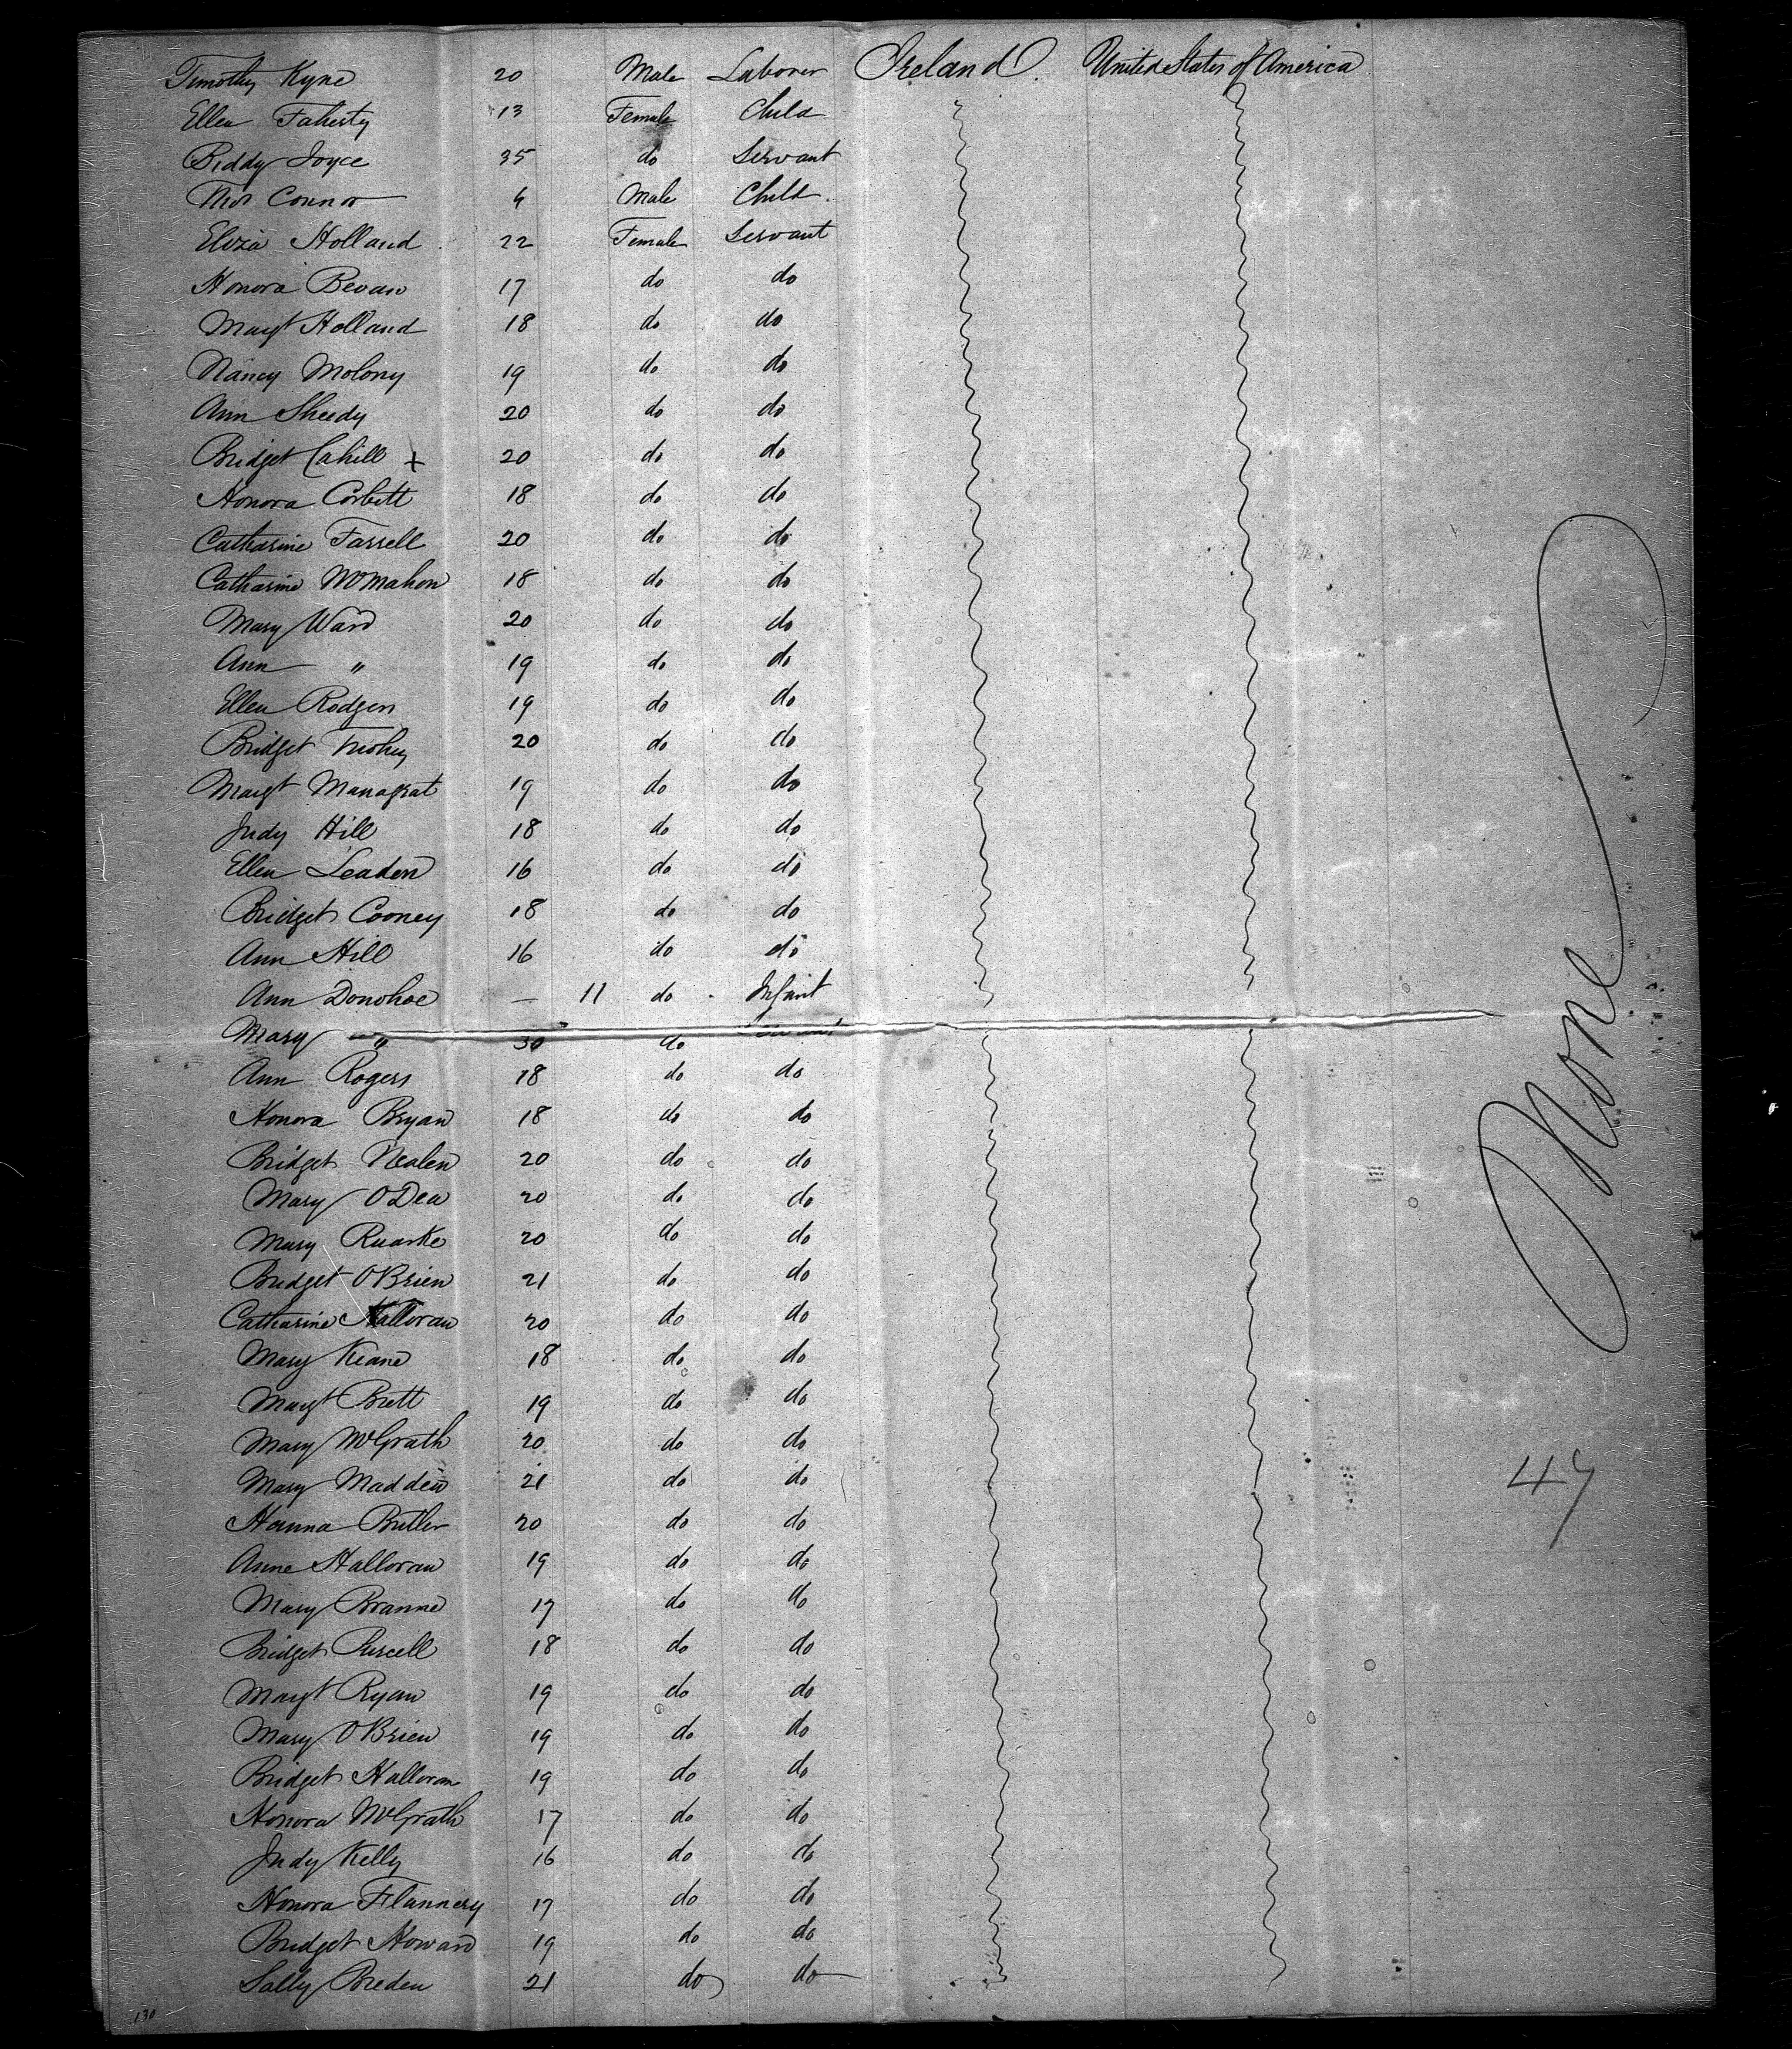 Timothy Kyne 20 Male Laborer Ireland. United States of America
Ellen Faherty 13 Female Child
Biddy Joyce 35 do Servant
Thos Connor 4 Male Child.
Eliza Holland 22 Female Servant
Honora Bevan 17 do do
Margt Holland 18 do do
Nancy Molony 19 do do
Ann Sheedy 20 do do
Bridget Cahill + 20 do do
Honora Corbett 18 do do
Catharine Farrell 20 do do
Catharine McMahon 18 do do
Mary Ward 20 do do
Ann " 19 do do
Ellen Rodgers 19 do do
Bridget 20 do do
Margt 19 do do
Judy Hill 18 do do
Ellen Leaden 16 do do
Bridget Cooney 18 do do
Ann Hill 16 do do
Ann Donohoe — 11 do Infant
Mary " 30 do
Ann Rogers 18 do do
Honora Bryan 18 do do
Bridget Nealen 20 do do
Mary ODea 20 do do
Mary Ruarke 20 do do
Bridget OBrien 21 do do
Catharine Halloran 20 do do
Mary Keane 18 do do
Margt Brett 19 do do
Mary McGrath 20 do do
Mary Madden 21 do do
Hanna Butler 20 do do
Anne Halloran 19 do do
Mary Branne 17 do do
Bridget Purcell 18 do do
Margt Ryan 19 do do
Mary OBrien 19 do do
Bridget Halloran 19 do do
Honora McGrath 17 do do
Judy Kelly 16 do do
Honora Flannery 17 do do
Bridget Howard 19 do do
Sally Breden 21 do do
None
47
130